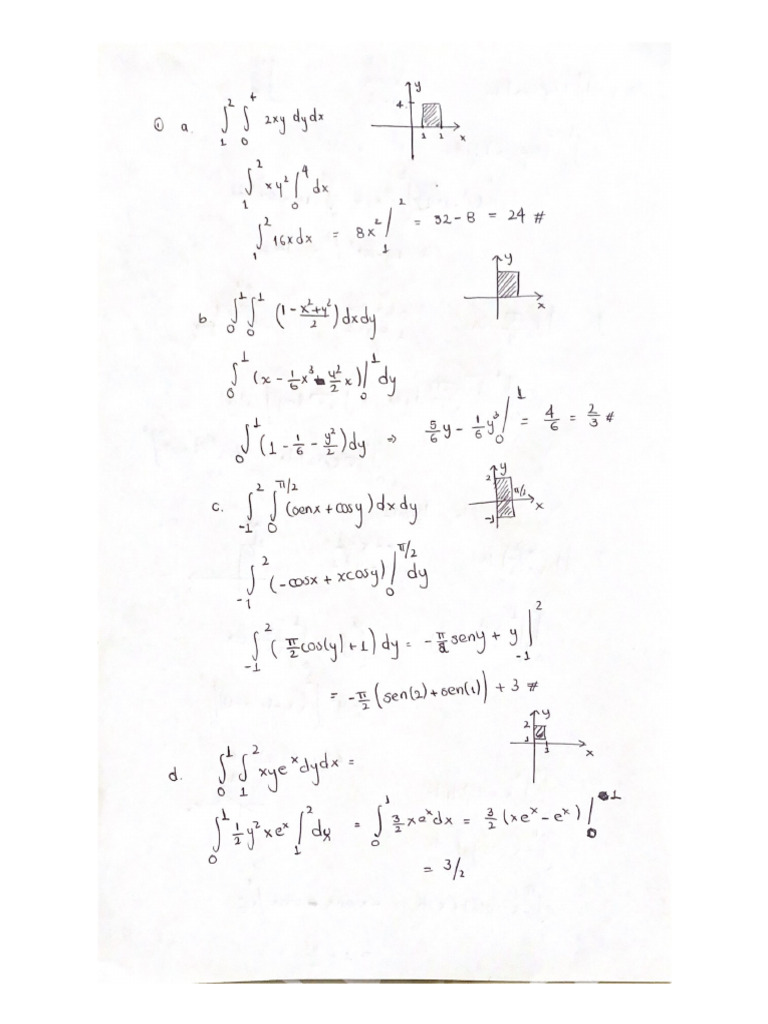 ① a. ∫₁² ∫₀⁴ 2xy dydx
y
4
1 2 x
∫₁² xy² |₀⁴ dx
∫₁² 16xdx = 8x² |₁² = 32 - 8 = 24 #
y
x
b ∫₀¹ ∫₀¹ (1 - (x²+y²)/2) dxdy
∫₀¹ (x - 1/6 x³ - y²/2 x) |₀¹ dy
∫₀¹ (1 - 1/6 - y²/2) dy ⇒ 5/6 y - 1/6 y³ |₀¹ = 4/6 = 2/3 #
y
2
π/2
x
-1
c. ∫₋₁² ∫₀^(π/2) (senx + cosy) dxdy
∫₋₁² (-cosx + xcosy) |₀^(π/2) dy
∫₋₁² (π/2 cos(y) + 1) dy = -π/2 seny + y |₋₁²
= -π/2 (sen(2) + sen(1)) + 3 #
y
2
1
1
x
d. ∫₀¹ ∫₁² xyeˣ dydx =
∫₀¹ 1/2 y² xeˣ |₁² dx = ∫₀¹ 3/2 xeˣ dx = 3/2 (xeˣ - eˣ) |₀¹
= 3/2